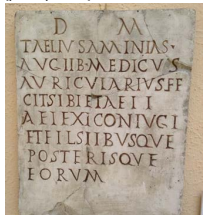 D M
T AELIVS AMINIAS
AVG LIB MEDICVS
AVRICVLARIVS FE
CIT SIBI ET AELI
AE
CONIVGI
ET FILIS LIBVSQVE
POSTERISQVE
EORVM